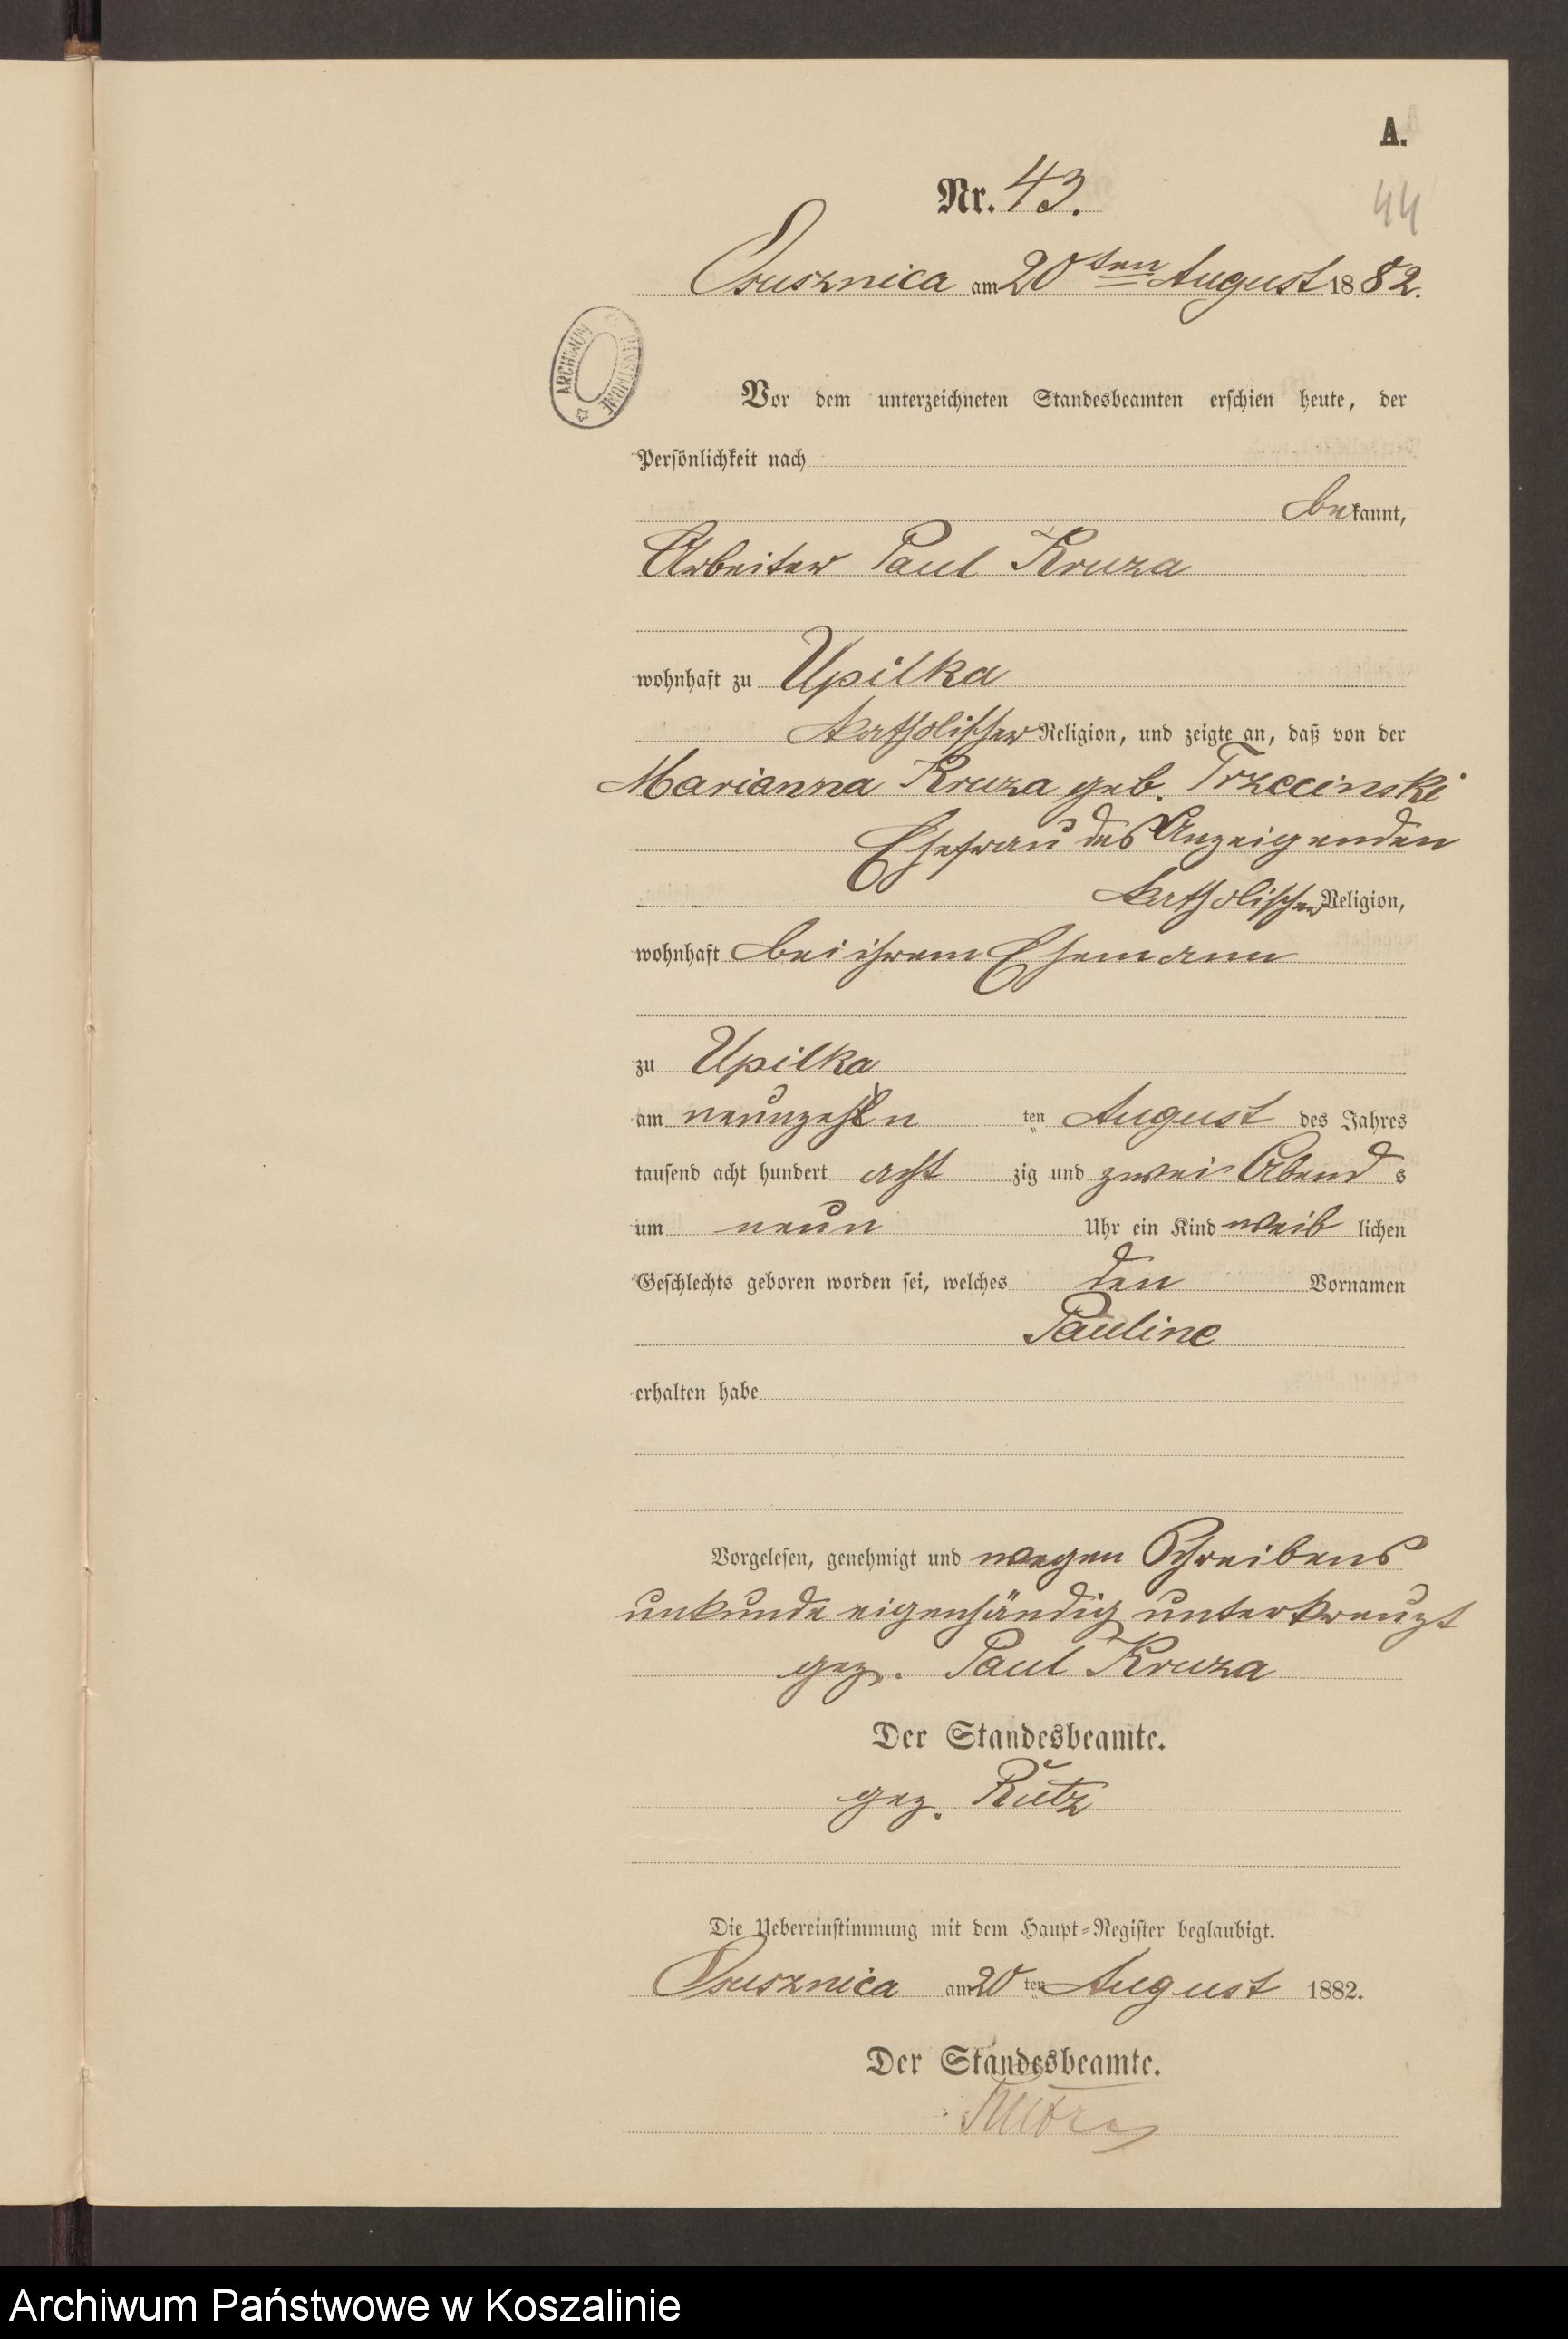 A.
Nr. 43.
44
Osusznica am 20ten August 1882.
ARCHIWUM PAŃSTWOWE
Vor dem unterzeichneten Standesbeamten erschien heute, der
Persönlichkeit nach
bekannt,
Arbeiter Paul Kruza
wohnhaft zu Upilka
katholischer Religion, und zeigte an, daß von der
Marianna Kruza geb. Trzecinski
Ehefrau des Anzeigenden
katholischer Religion,
wohnhaft bei ihrem Ehemann
zu Upilka
am neunzehn ten August des Jahres
tausend acht hundert acht zig und zwei Abend s
um neun Uhr ein Kind weib lichen
Geschlechts geboren worden sei, welches den Vornamen
Pauline
erhalten habe
Vorgelesen, genehmigt und wegen Schreibens
unkunde eigenhändig unterkreuzt
gez. Paul Kruza
Der Standesbeamte.
gez. Rutz
Die Uebereinstimmung mit dem Haupt-Register beglaubigt.
Osusznica am 20ten August 1882.
Der Standesbeamte.
Archiwum Państwowe w Koszalinie